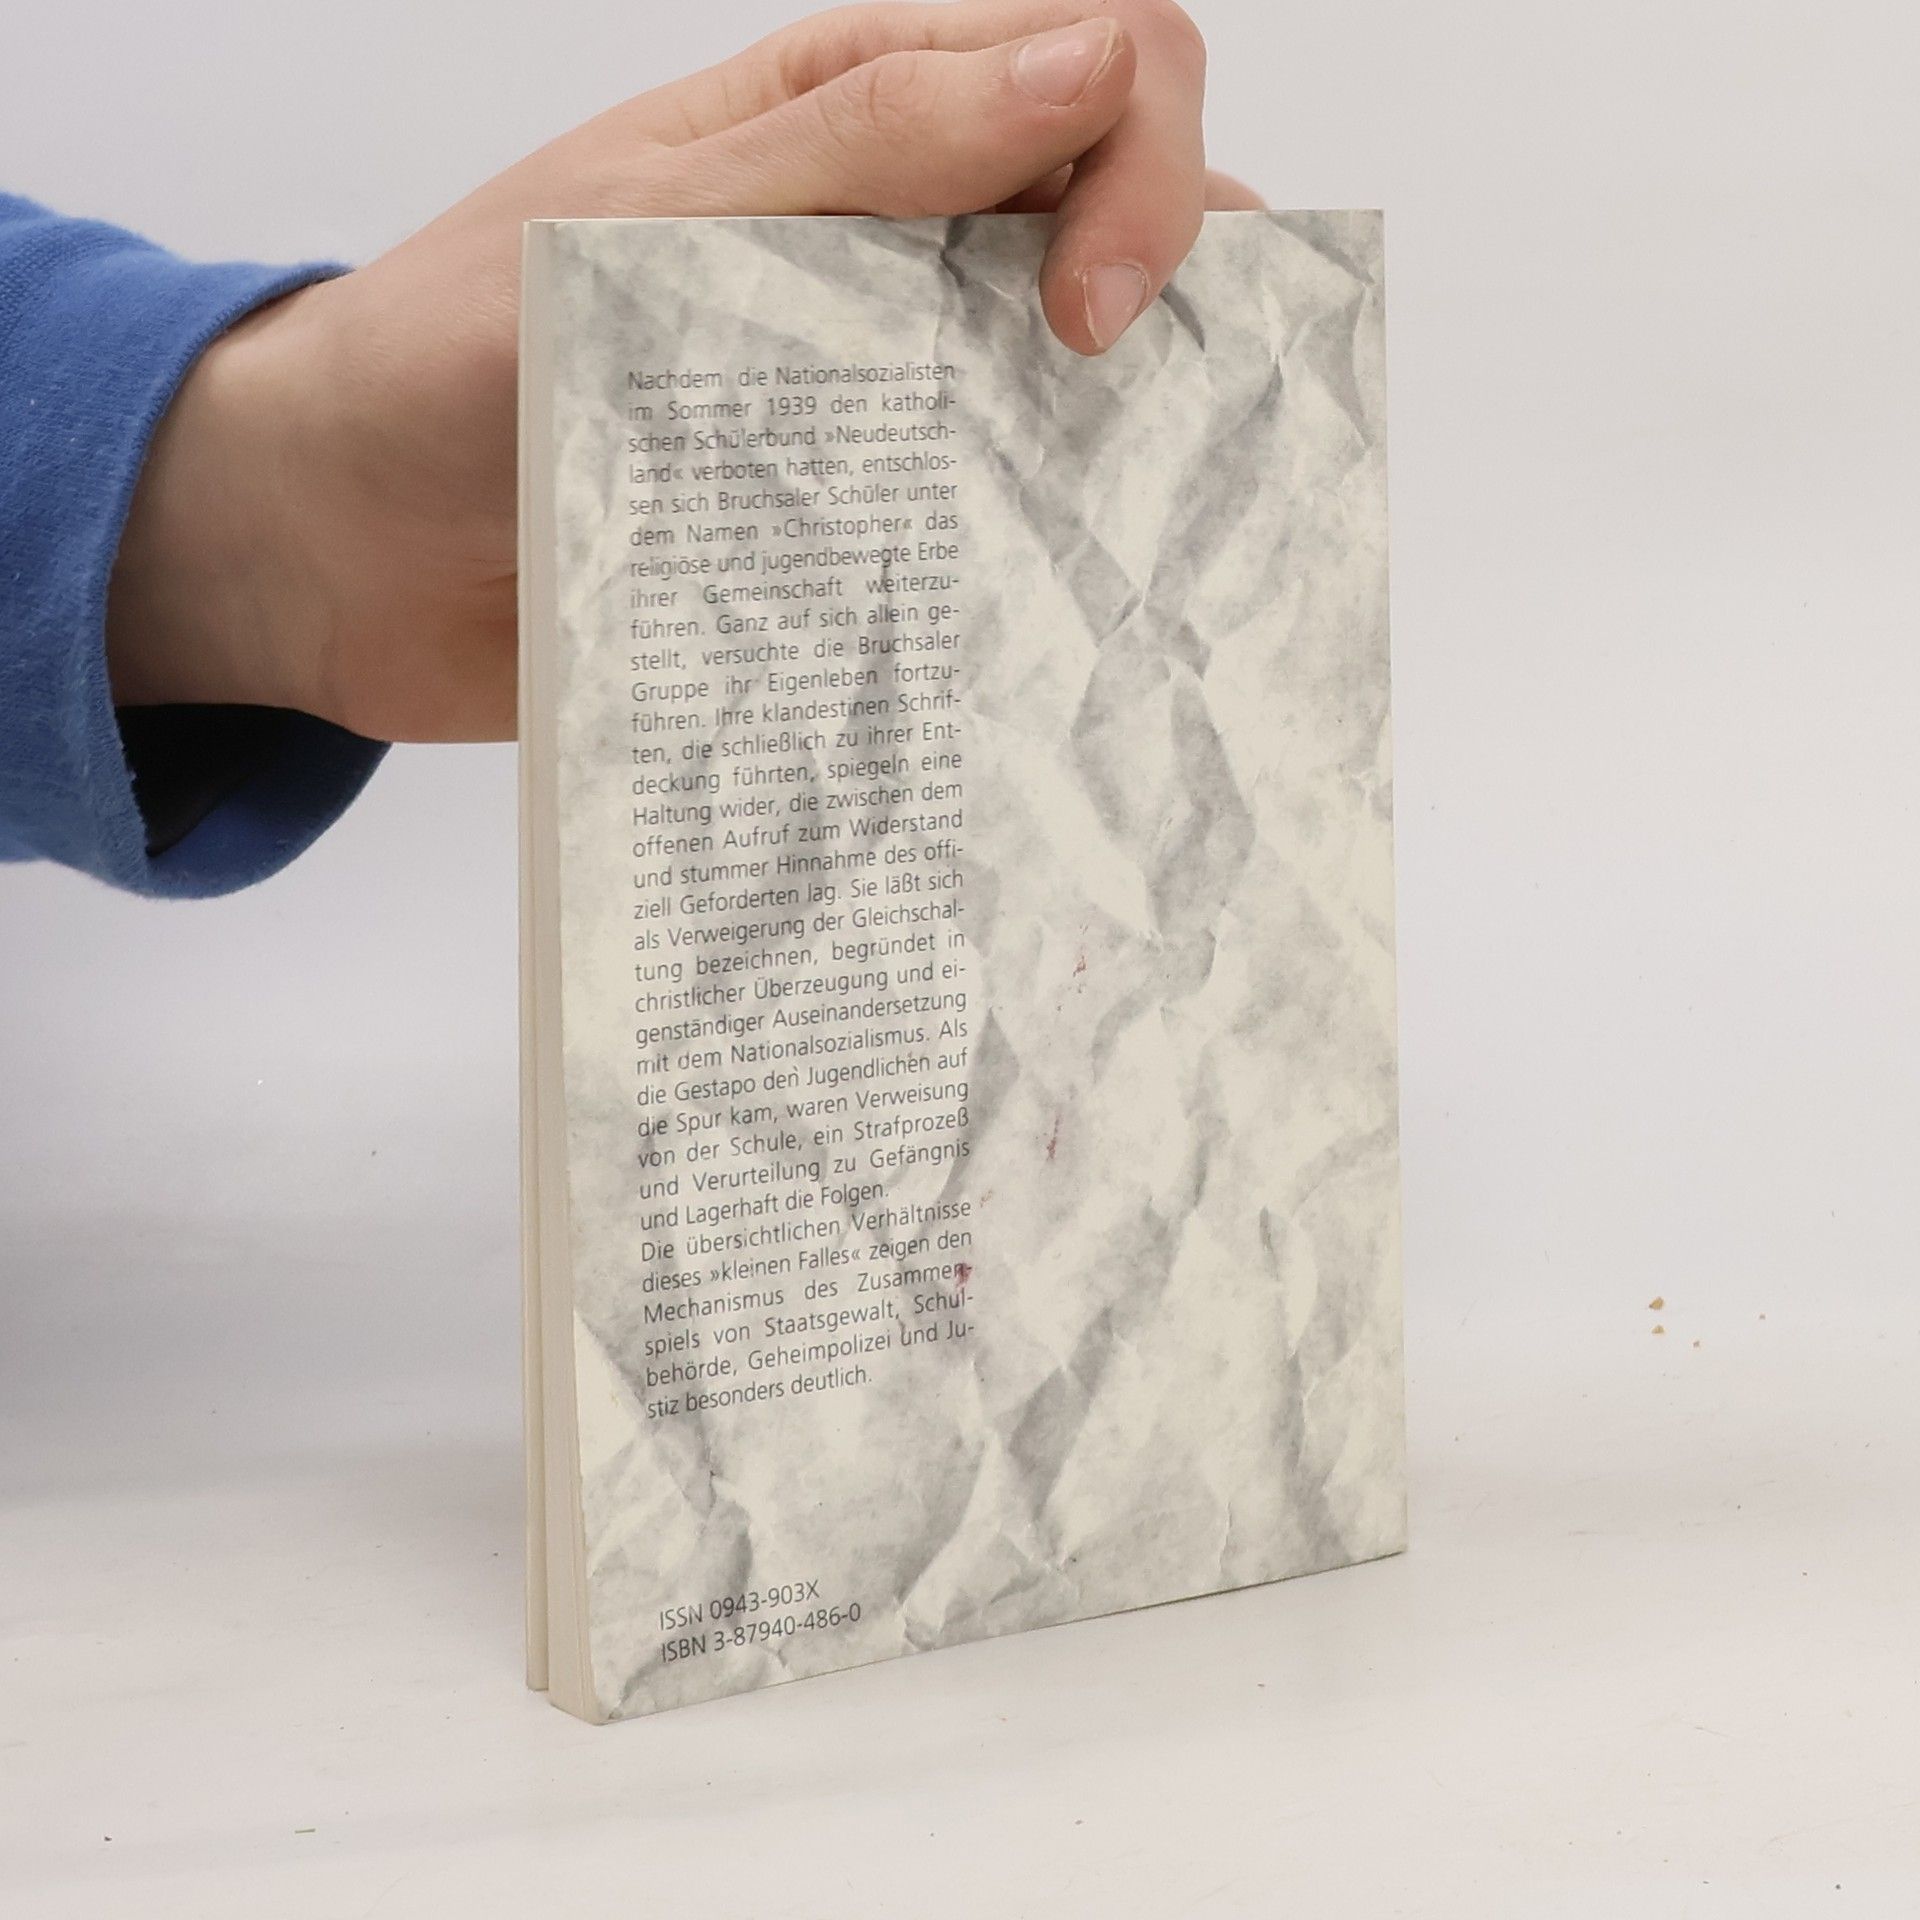 Nachdem die Nationalsozialisten
im Sommer 1939 den katholi-
schen Schülerbund »Neudeutsch-
land« verboten hatten, entschlos-
sen sich Bruchsaler Schüler unter
dem Namen »Christopher« das
religiöse und jugendbewegte Erbe
ihrer Gemeinschaft weiterzu-
führen. Ganz auf sich allein ge-
stellt, versuchte die Bruchsaler
Gruppe ihr Eigenleben fortzu-
führen. Ihre klandestinen Schrif-
ten, die schließlich zu ihrer Ent-
deckung führten, spiegeln eine
Haltung wider, die zwischen dem
offenen Aufruf zum Widerstand
und stummer Hinnahme des offi-
ziell Geforderten lag. Sie läßt sich
als Verweigerung der Gleichschal-
tung bezeichnen, begründet in
christlicher Überzeugung und ei-
genständiger Auseinandersetzung
mit dem Nationalsozialismus. Als
die Gestapo den Jugendlichen auf
die Spur kam, waren Verweisung
von der Schule, ein Strafprozeß
und Verurteilung zu Gefängnis
und Lagerhaft die Folgen.
Die übersichtlichen Verhältnisse
dieses »kleinen Falles« zeigen den
Mechanismus des Zusammen-
spiels von Staatsgewalt, Schul-
behörde, Geheimpolizei und Ju-
stiz besonders deutlich.
ISSN 0943-903X
ISBN 3-87940-486-0